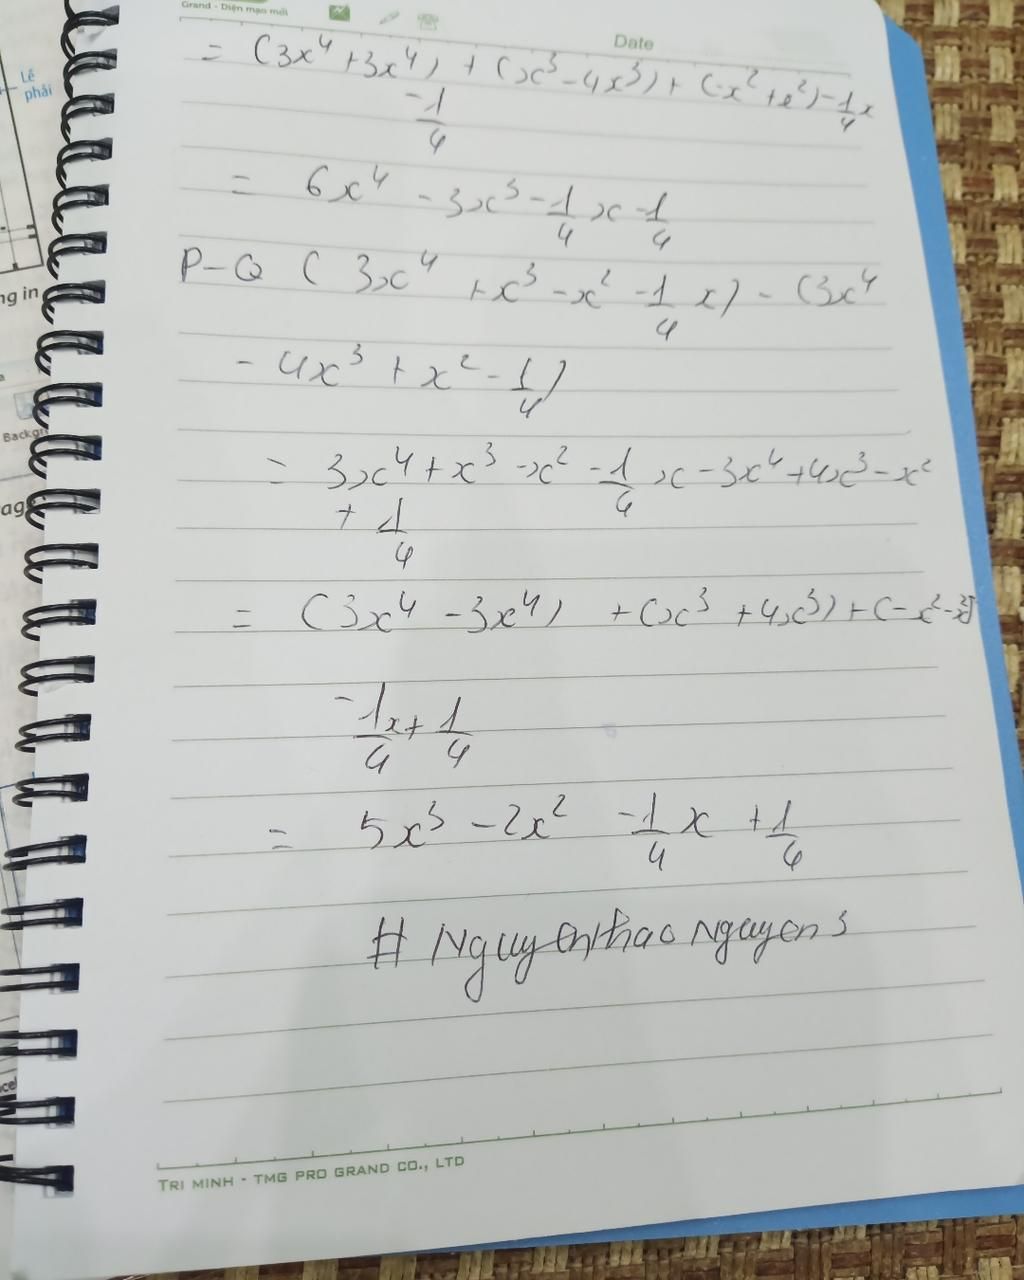 Grand - Diện mạo mới
Date
Lề
phải
= (3x⁴ + 3x⁴) + (x³ - 4x³) + (-x² + x²) - 1/4 x
- 1/4
= 6x⁴ - 3x³ - 1/4 x - 1/4
P - Q ( 3x⁴ + x³ - x² - 1/4 x) - (3x⁴
- 4x³ + x² - 1/4)
= 3x⁴ + x³ - x² - 1/4 x - 3x⁴ + 4x³ - x²
+ 1/4
= (3x⁴ - 3x⁴) + (x³ + 4x³) + (-x² - x²)
- 1/4 x + 1/4
= 5x³ - 2x² - 1/4 x + 1/4
# Nguyenthao Nguyen
ng in
TRI MINH - TMG PRO GRAND CO., LTD